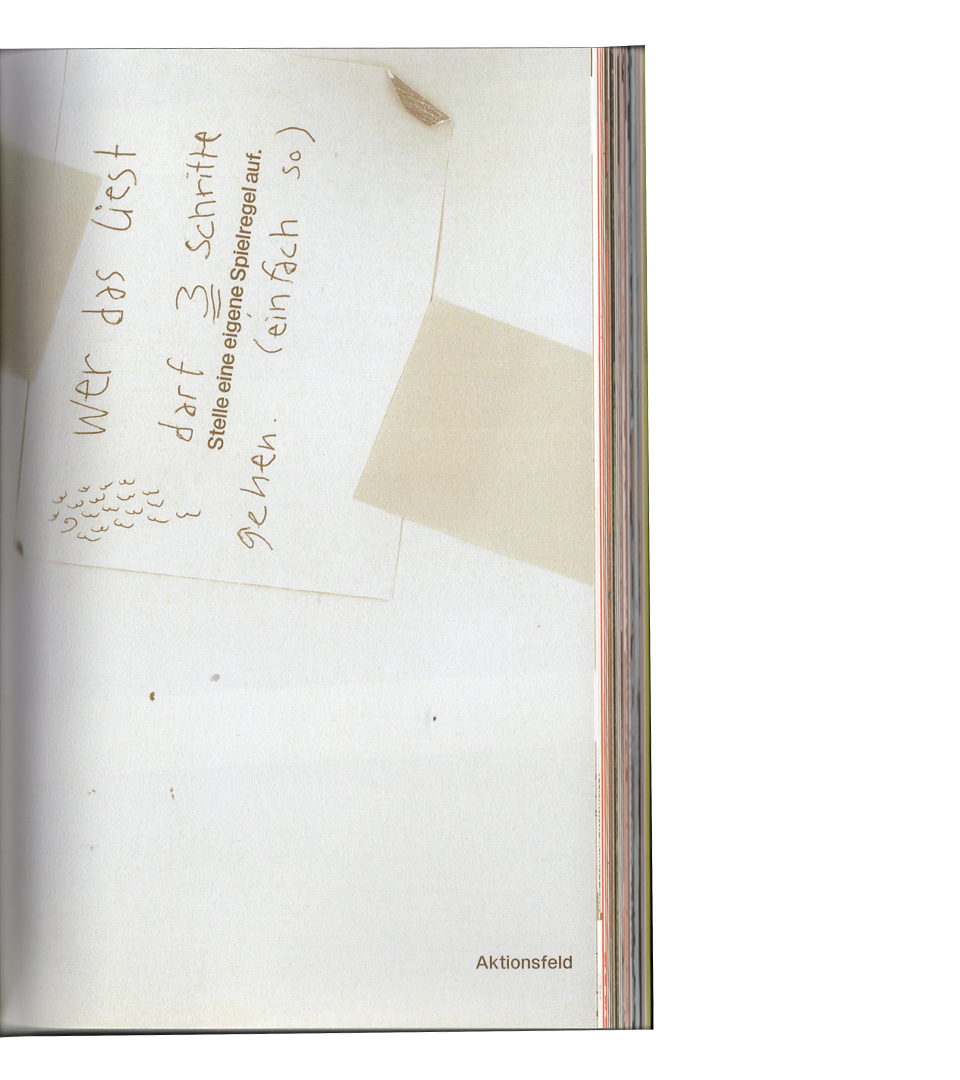 Wer das liest
darf 3 Schritte
gehen. (einfach so)
Stelle eine eigene Spielregel auf.
Aktionsfeld